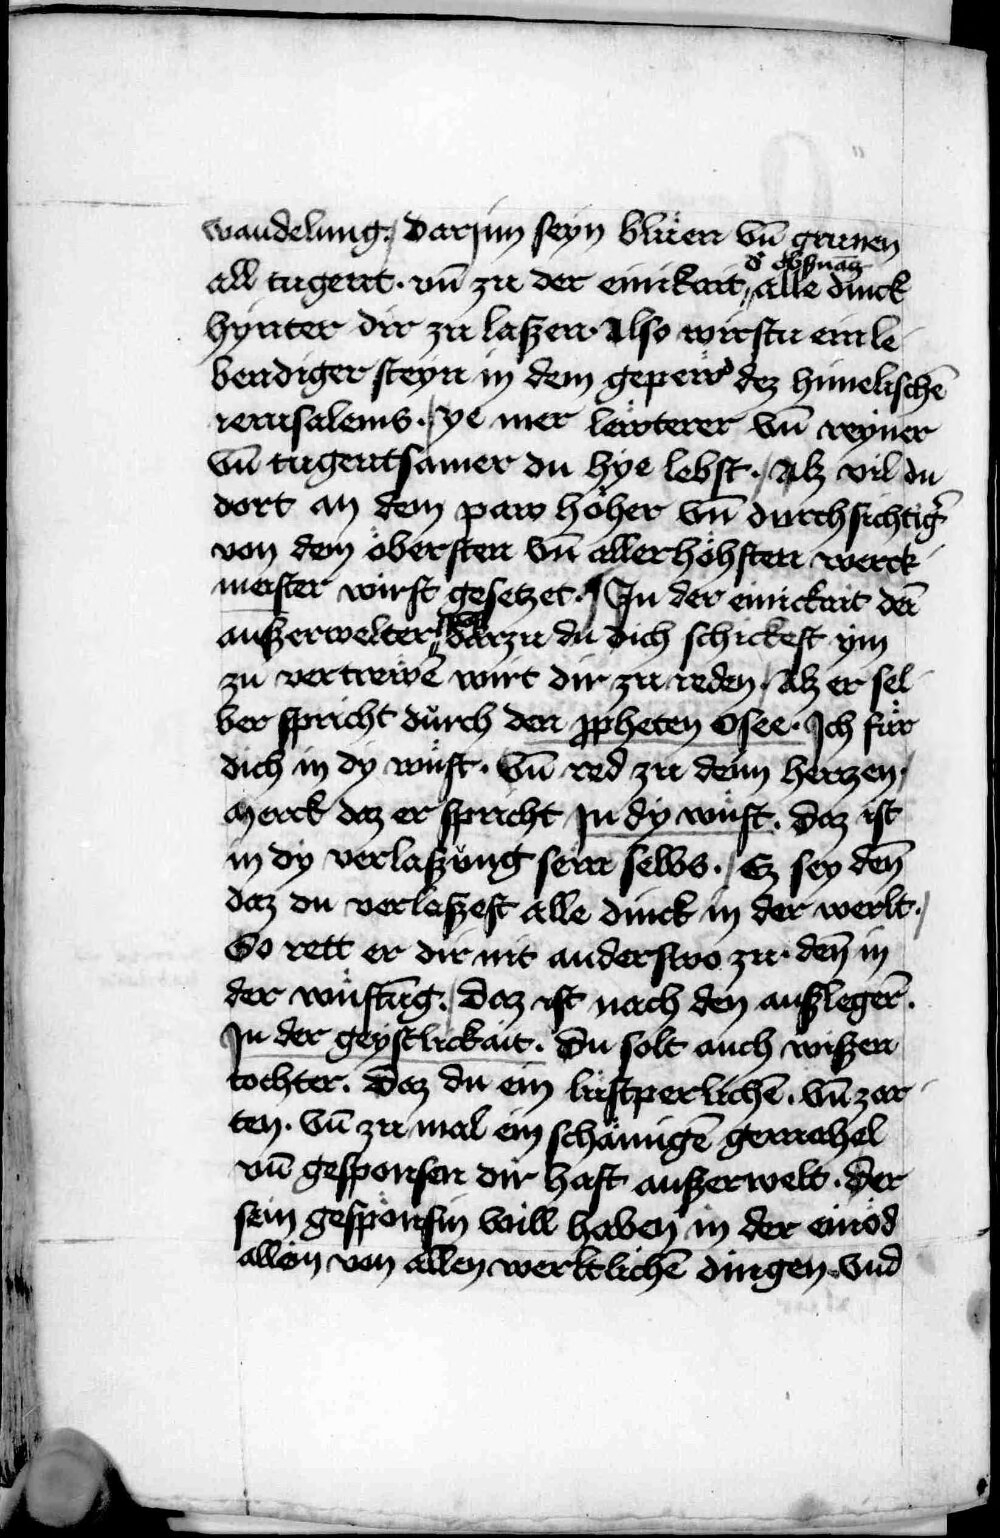 wandelung. / Darjnn seyn blüen vn̄ grunen
d͛ obßnāg
all tugent. vn̄ zu der einikait „ alle dinck
hynter dir zu laßen. Also wirstu ein le
bendiger steyn in dem gepew dez himelischē
ierusalems. / ye mer lewterer vn̄ reyner
vn̄ tugentsamer du hye lebst. / Alz vil du
dort an dem paw höher vn̄ durchsichtig͛
von dem öbersten vn̄ allerhöhsten werck
meister wirst gesetzet. / Jn der einickait der
außerwelter „ darzu du dich schickest ym
zu vertrewē wirt dir zu reden. / Alz er sel
ber spricht dürch den ppheten Osee. Jch für
dich in dy wüst. Vn̄ red zu deim hertzen. /
Merck daz er spricht Jn dy wüst. Daz ist
in dy verlaßüng sein selbs. / Ez sey den̄
daz du verlaßest alle dinck in der werlt. /
So rett er dir nit anderswo zu. den̄ in
der wüstūg. / Daz ist nach den außleger̄.
Jn der geystlickait. Du solt auch wißen
tochter. Daz du ein lüstperlichē. vn̄ zar
ten. Vn̄ zu mal ein schämigē gemahel
vn̄ gesponsen dir hast außerwelt. Der
sein gespönsin will haben in der einöd
allein von allen werltlichē dingen. Vnd